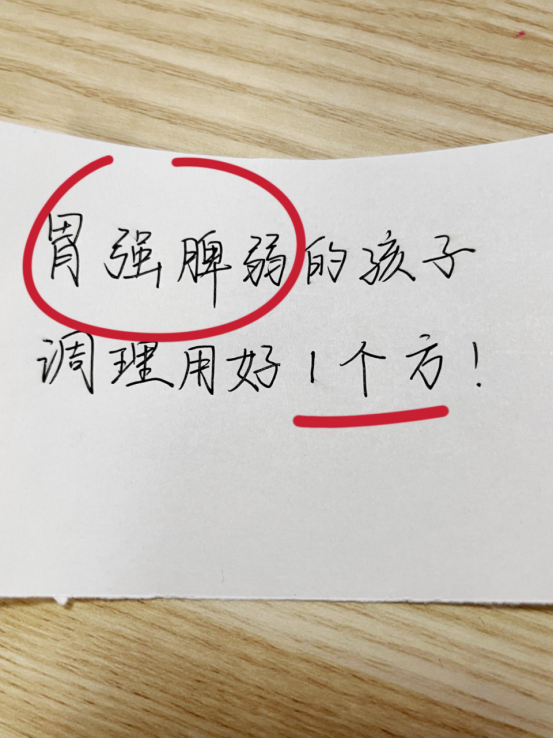 胃强脾弱的孩子
调理用好1个方!